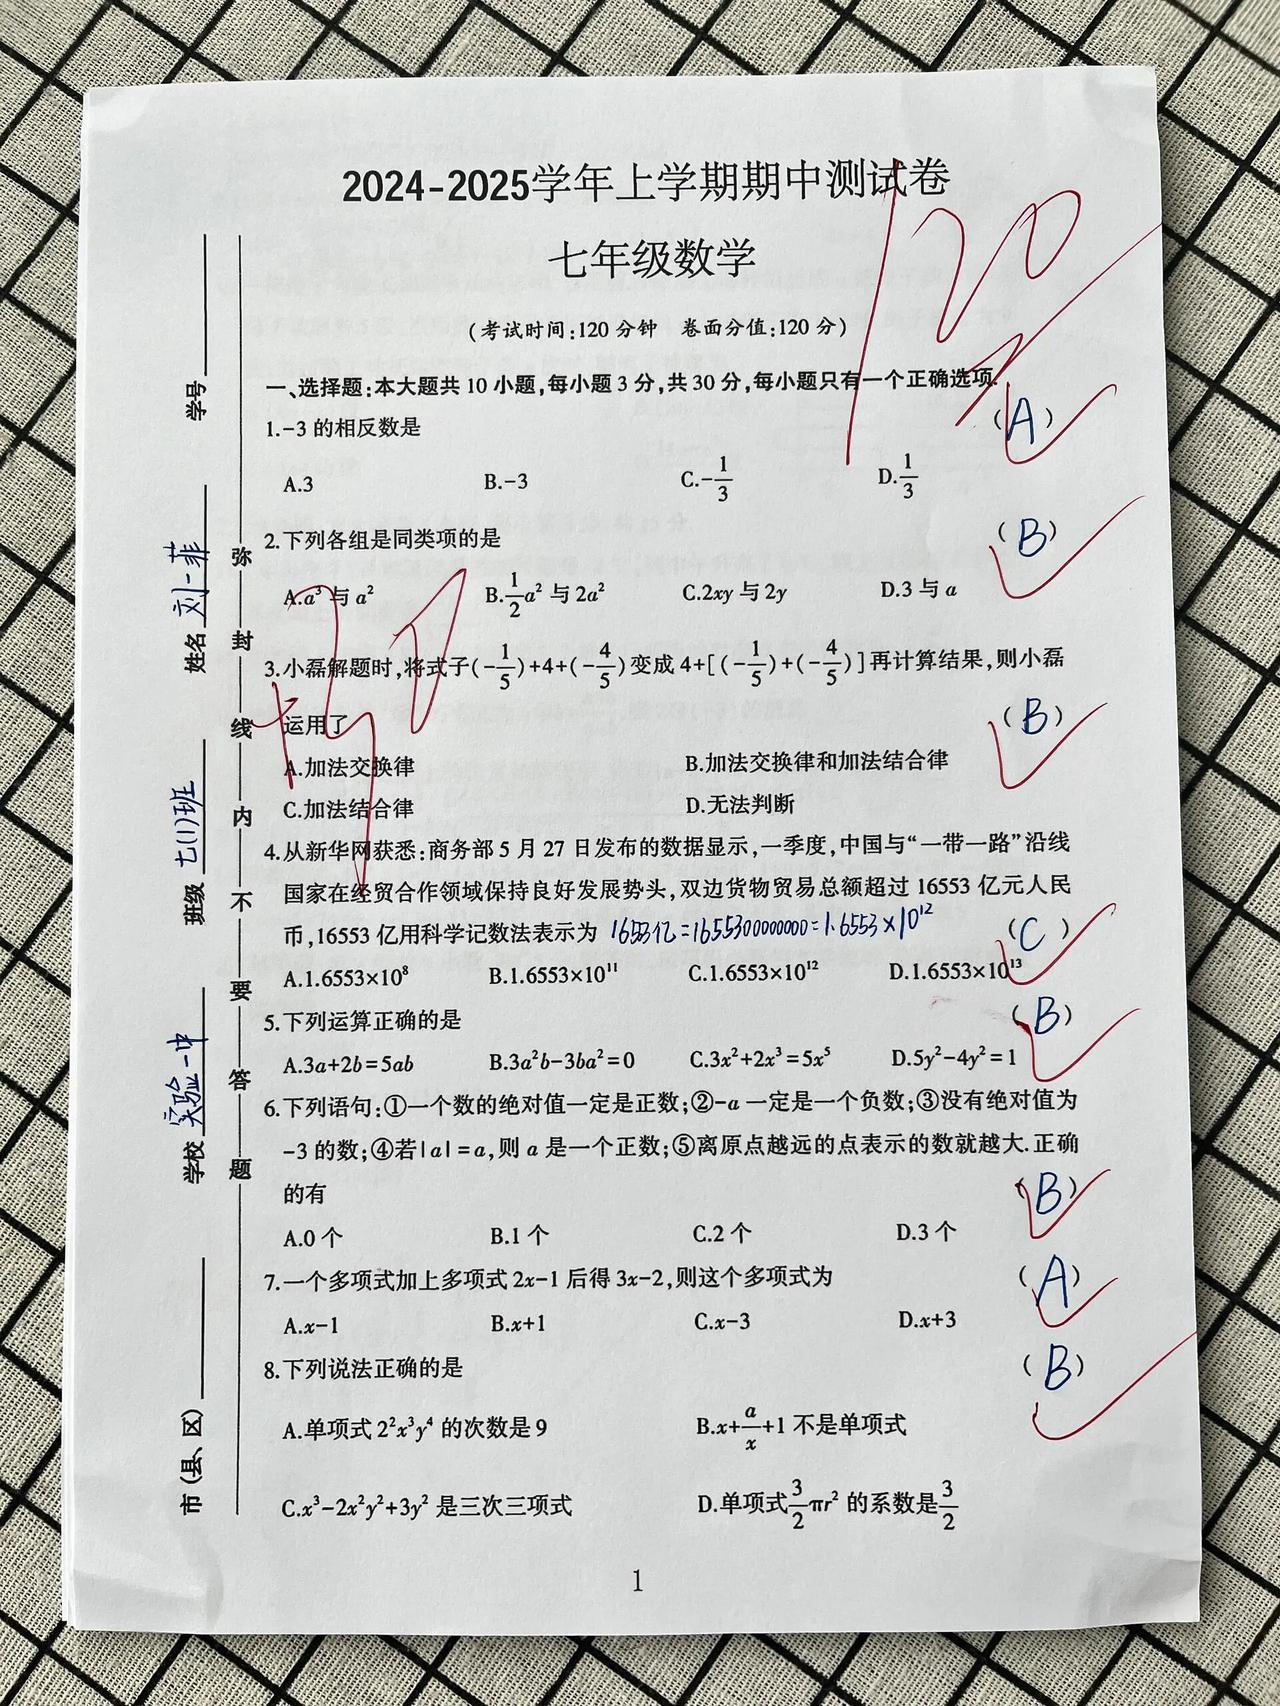 2024-2025学年上学期期中测试卷
七年级数学
120
(考试时间:120分钟 卷面分值:120分)
一、选择题:本大题共10小题,每小题3分,共30分,每小题只有一个正确选项.
1.-3的相反数是 (A)
A.3 B.-3 C.-1/3 D.1/3
2.下列各组是同类项的是 (B)
A.a³与a² B.1/2a²与2a² C.2xy与2y D.3与a
+30
3.小磊解题时,将式子(-1/5)+4+(-4/5)变成4+[(-1/5)+(-4/5)]再计算结果,则小磊
运用了 (B)
A.加法交换律 B.加法交换律和加法结合律
C.加法结合律 D.无法判断
4.从新华网获悉:商务部5月27日发布的数据显示,一季度,中国与“一带一路”沿线
国家在经贸合作领域保持良好发展势头,双边货物贸易总额超过16553亿元人民
币,16553亿用科学记数法表示为 16553亿=1655300000000=1.6553×10¹² (C)
A.1.6553×10⁸ B.1.6553×10¹¹ C.1.6553×10¹² D.1.6553×10¹³
5.下列运算正确的是 (B)
A.3a+2b=5ab B.3a²b-3ba²=0 C.3x²+2x³=5x⁵ D.5y²-4y²=1
6.下列语句:①一个数的绝对值一定是正数;②-a一定是一个负数;③没有绝对值为
-3的数;④若|a|=a,则a是一个正数;⑤离原点越远的点表示的数就越大.正确
的有 (B)
A.0个 B.1个 C.2个 D.3个
7.一个多项式加上多项式2x-1后得3x-2,则这个多项式为 (A)
A.x-1 B.x+1 C.x-3 D.x+3
8.下列说法正确的是 (B)
A.单项式2²x³y⁴的次数是9 B.x+a/x+1不是单项式
C.x³-2x²y²+3y²是三次三项式 D.单项式3/2πr²的系数是3/2
1
市(县、区)
学校 实验一中
班级 七(1)班
姓名 刘一菲
学号
弥封线内不要答题